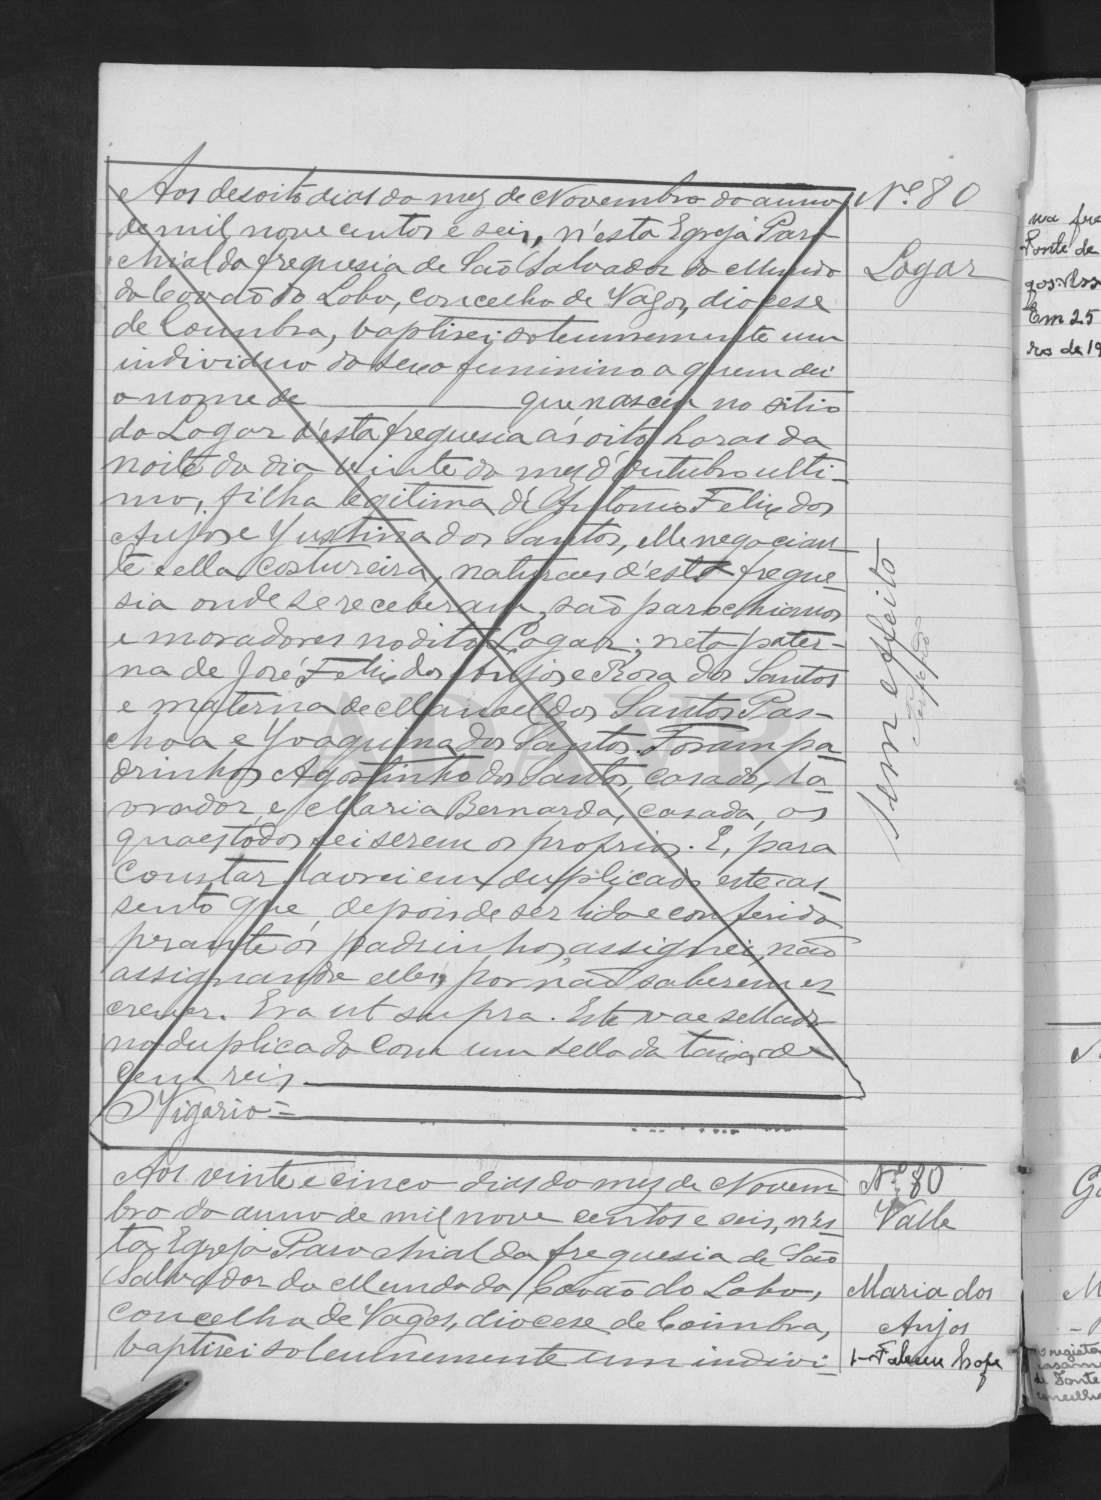 Aos desoito dias do mez de Novembro do anno
de mil nove centos e seis, n'esta Egreja Paro-
chial da freguesia de São Salvador do Mundo
do Covão do Lobo, concelho de Vagos, diocese
de Coimbra, baptisei solemnemente um
individuo do sexo feminino a quem dei
o nome de que nasceu no sitio
do Logar d'esta freguesia ás oito horas da
noite do dia vinte do mez d'outubro ulti-
mo, filha legitima de Antonio Felix dos
Anjos e Justina dos Santos, elle negocian-
te e ella costureira, naturaes d'esta fregue-
sia onde se receberam, são parochianos
e moradores no dito Logar; neta pater-
na de José Felix dos Anjos e Rosa dos Santos
e materna de Manoel dos Santos Pas-
choa e Joaquina dos Santos. Foram pa-
drinhos Agostinho dos Santos, casado, la-
vrador, e Maria Bernarda, casada, os
quaes todos sei serem os proprios. E, para
constar lavrei em duplicado este as-
sento que, depois de ser lido e conferido
perante os padrinhos, assignei, não
assignando elles, por não saberem es-
crever. Era ut supra. Este vae sellado
no duplicado com um sello da taixa de
cem reis
O Vigario =
Nº 80
Logar
sem effeito
Aos vinte e cinco dias do mez de Novem-
bro do anno de mil nove centos e seis, n'es-
ta Egreja Parochial da freguesia de São
Salvador do Mundo do Covão do Lobo,
concelho de Vagos, diocese de Coimbra,
baptisei solemnemente um indivi-
Nº 80
Valle
Maria dos
Anjos
na fre
Fonte de
Em 25
ro de 19